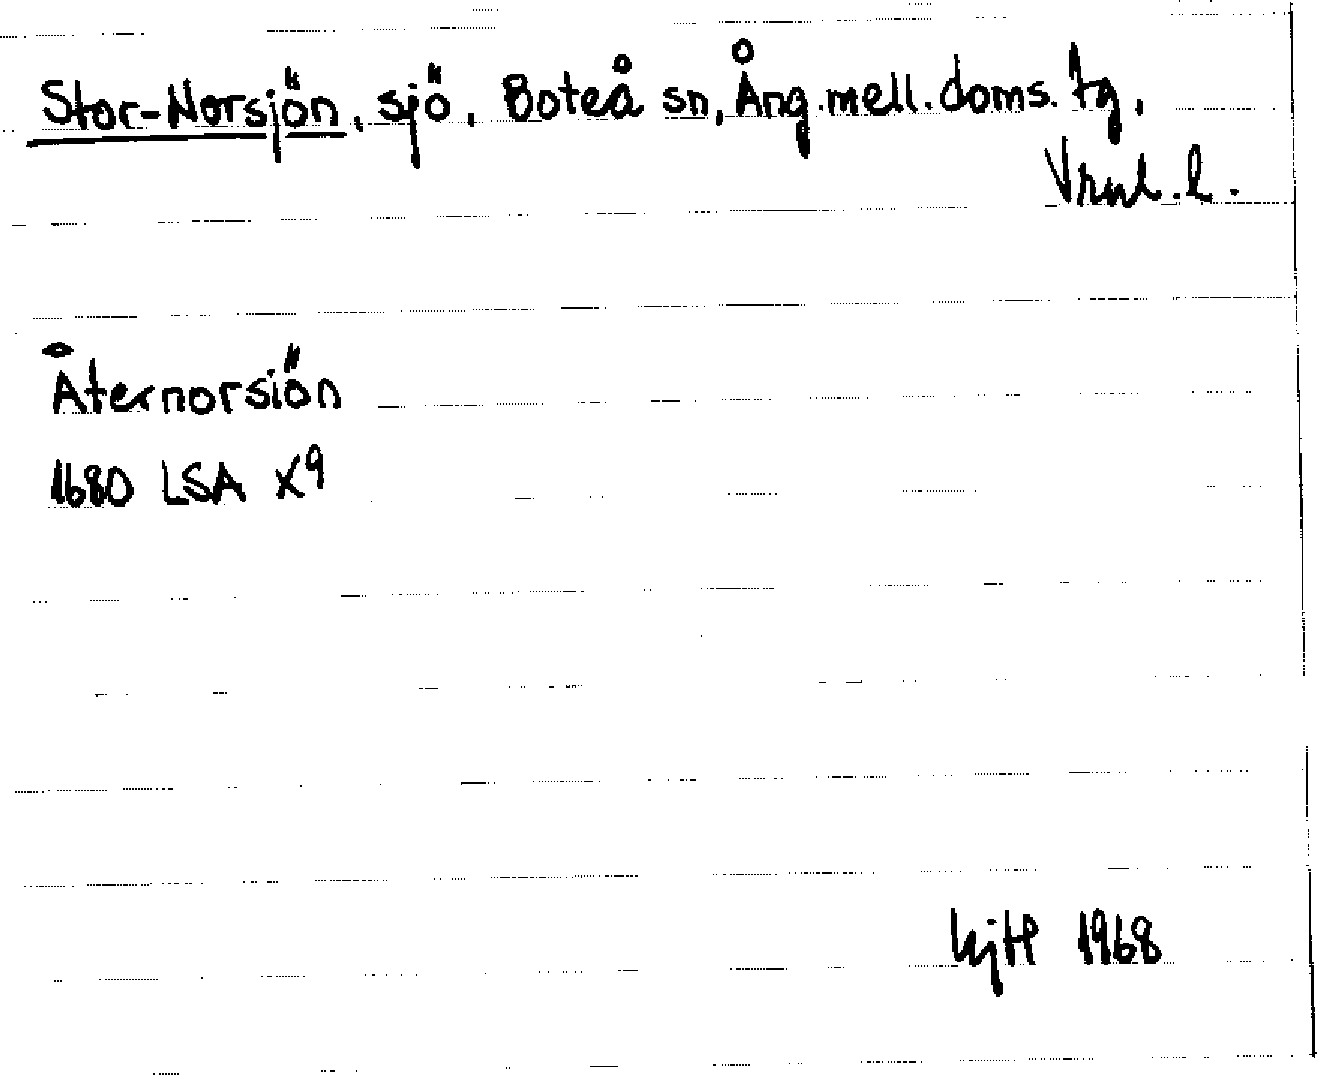 Stor-Norsjön, sjö, Boteå sn, Ång.mell.doms.tg,
Vrnl.l.
Åternorsiön
1680 LSA X9
1968